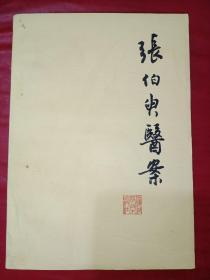 張伯臾醫案